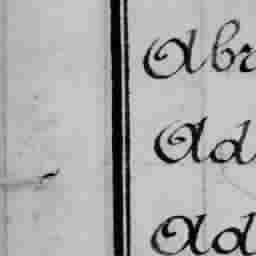 Abr
Ad
Ad